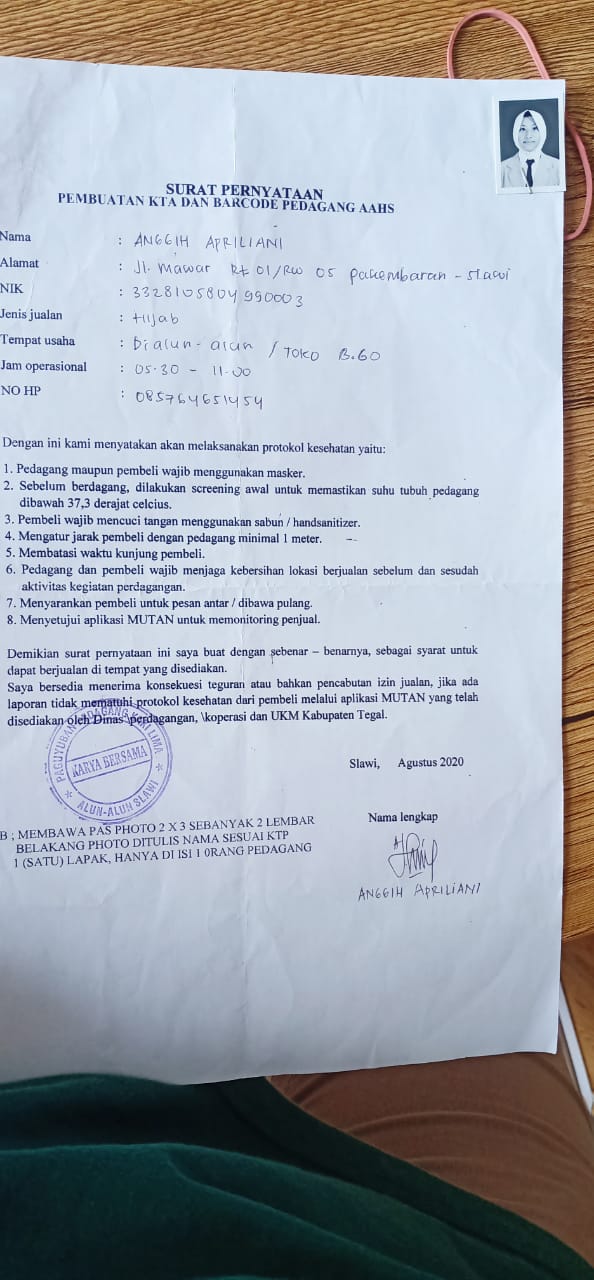 SURAT PERNYATAAN
PEMBUATAN KTA DAN BARCODE PEDAGANG AAHS
Nama : ANGGIH APRILIANI
Alamat : Jl. Mawar Rt 01/RW 05 Pakembaran - Slawi
NIK : 3328105804990003
Jenis jualan : Hijab
Tempat usaha : Dialun- alun / TOKO B.60
Jam operasional : 05.30 - 11.00
NO HP : 085764651454
Dengan ini kami menyatakan akan melaksanakan protokol kesehatan yaitu:
1. Pedagang maupun pembeli wajib menggunakan masker.
2. Sebelum berdagang, dilakukan screening awal untuk memastikan suhu tubuh pedagang
dibawah 37,3 derajat celcius.
3. Pembeli wajib mencuci tangan menggunakan sabun / handsanitizer.
4. Mengatur jarak pembeli dengan pedagang minimal 1 meter.
5. Membatasi waktu kunjung pembeli.
6. Pedagang dan pembeli wajib menjaga kebersihan lokasi berjualan sebelum dan sesudah
aktivitas kegiatan perdagangan.
7. Menyarankan pembeli untuk pesan antar / dibawa pulang.
8. Menyetujui aplikasi MUTAN untuk memonitoring penjual.
Demikian surat pernyataan ini saya buat dengan sebenar – benarnya, sebagai syarat untuk
dapat berjualan di tempat yang disediakan.
Saya bersedia menerima konsekuesi teguran atau bahkan pencabutan izin jualan, jika ada
laporan tidak mematuhi protokol kesehatan dari pembeli melalui aplikasi MUTAN yang telah
disediakan oleh Dinas \perdagangan, \koperasi dan UKM Kabupaten Tegal.
PAGUYUBAN PEDAGANG KAKI LIMA
KARYA BERSAMA
ALUN-ALUN SLAWI
Slawi, Agustus 2020
B ; MEMBAWA PAS PHOTO 2 X 3 SEBANYAK 2 LEMBAR
BELAKANG PHOTO DITULIS NAMA SESUAI KTP
1 (SATU) LAPAK, HANYA DI ISI 1 0RANG PEDAGANG
Nama lengkap
ANGGIH APRILIANI